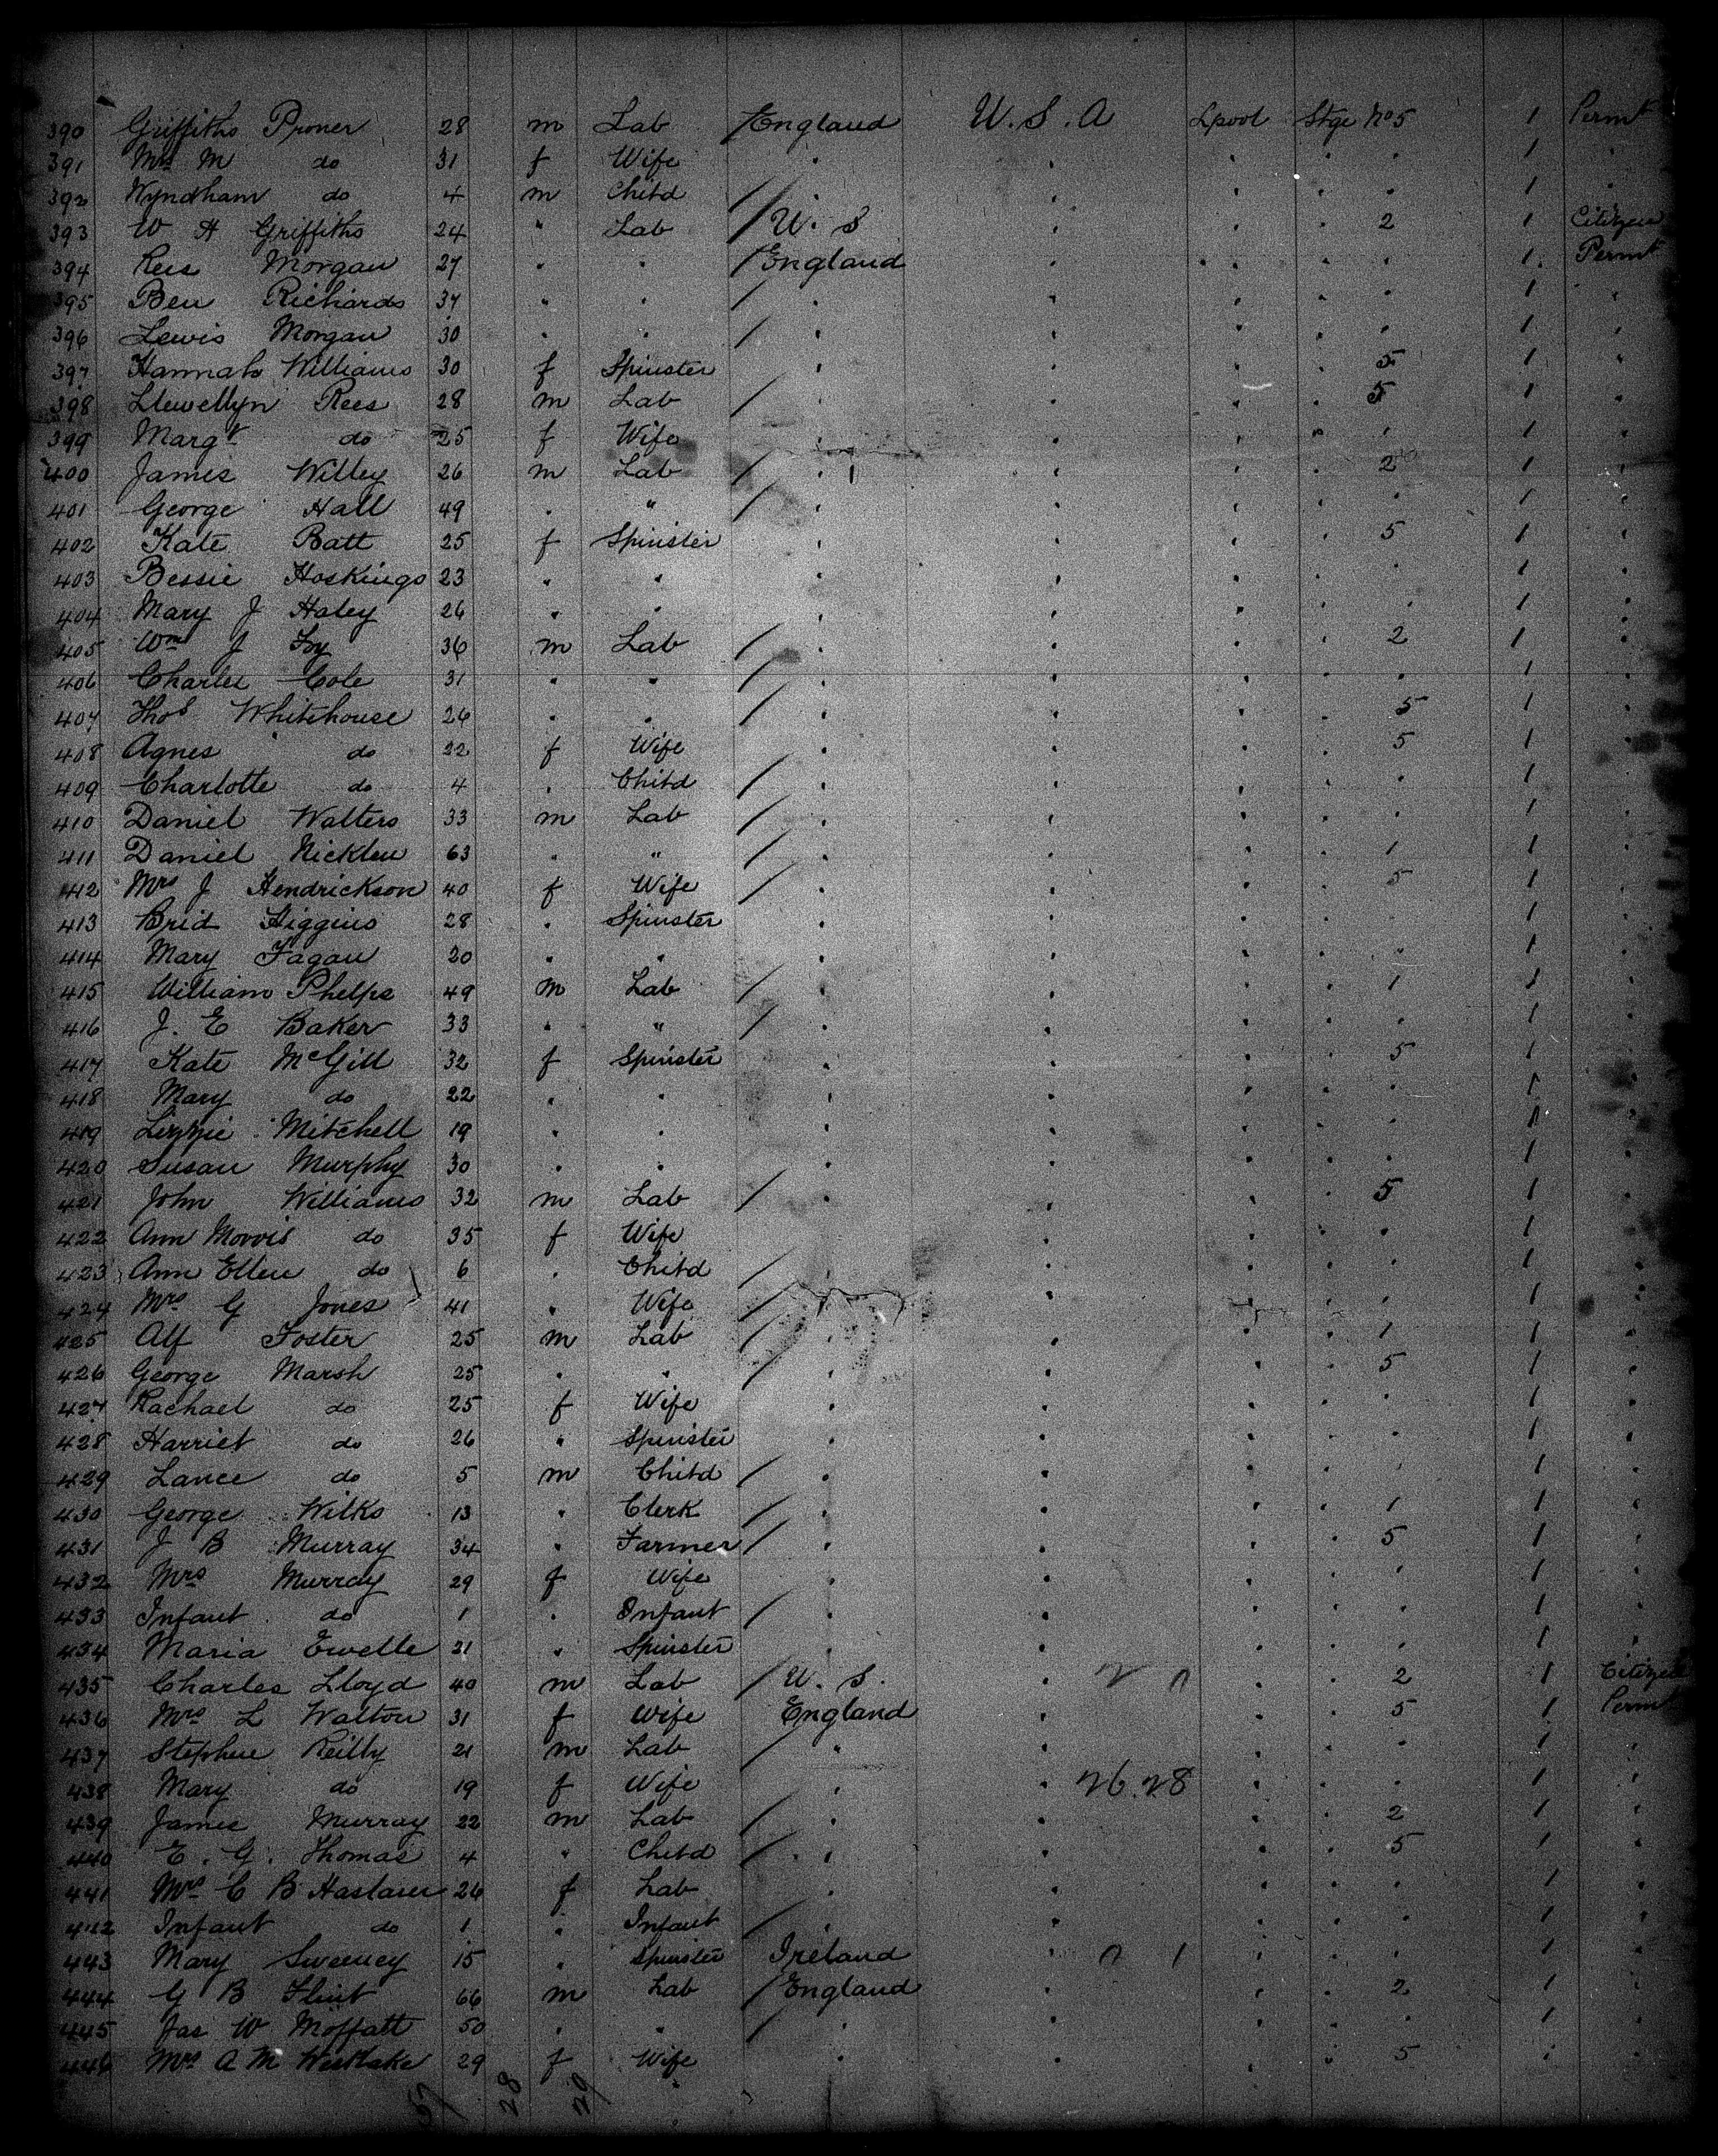 390 Griffiths Proner 28 m Lab / England U. S. A Lpool Stge No 5 1 Permt
391 Mrs M do 31 f Wife . . . . . 1 .
392 Wyndham do 4 m Child / . . . . . 1 .
393 W H Griffiths 24 " Lab / U. S . . . 2 1 Citizen
394 Rees Morgan 27 . . / England . . . . 1 Permt
395 Ben Richards 37 . . / . . . . . 1 .
396 Lewis Morgan 30 . . / . . . . . 1 .
397 Hannah Williams 30 f Spinster . . . . 5 1 .
398 Llewellyn Rees 28 m Lab / . . . . 5 1 .
399 Margt do 25 f Wife . . . . . 1 .
400 James Willey 26 m Lab / . . . . 2 1 .
401 George Hall 49 . " / . . . . . 1 .
402 Kate Batt 25 f Spinster . . . . 5 1 .
403 Bessie Hoskings 23 . . . . . . . 1 .
404 Mary J Haley 26 . . . . . . . 1 .
405 Wm J Foy 36 m Lab / . . . . 2 1 .
406 Charles Cole 31 . . / . . . . . 1 .
407 Thos Whitehouse 26 . . / . . . . 5 1 .
408 Agnes do 22 f Wife . . . . 5 1 .
409 Charlotte do 4 . Child / . . . . . 1 .
410 Daniel Walters 33 m Lab / . . . . . 1 .
411 Daniel Nicklen 63 . " / . . . . 1 1 .
412 Mrs J Hendrickson 40 f Wife / . . . . 5 1 .
413 Brid Higgins 28 . Spinster . . . . . 1 .
414 Mary Fagan 20 . . . . . . . 1 .
415 William Phelps 49 m Lab / . . . . 1 1 .
416 J. E Baker 33 . " / . . . . . 1 .
417 Kate McGill 32 f Spinster . . . . 5 1 .
418 Mary do 22 . . . . . . . 1 .
419 Lizzie Mitchell 19 . . . . . . . 1 .
420 Susan Murphy 30 . . . . . . . 1 .
421 John Williams 32 m Lab / . . . . 5 1 .
422 Ann Morris do 35 f Wife . . . . . 1 .
423 Ann Ellen do 6 . Child / . . . . . 1 .
424 Mrs G Jones 41 . Wife / . . . . . 1 .
425 Alf Foster 25 m Lab / . . . . 1 1 .
426 George Marsh 25 . . / . . . . 5 1 .
427 Rachael do 25 f Wife . . . . . 1 .
428 Harriet do 26 " Spinster . . . . . 1 .
429 Lance do 5 m Child / . . . . . 1 .
430 George Wilks 13 " Clerk / . . . . 1 1 .
431 J B Murray 34 " Farmer / . . . . 5 1 .
432 Mrs Murray 29 f Wife . . . . . 1 .
433 Infant do 1 . Infant / . . . . . 1 .
434 Maria Ewelle 21 . Spinster . . . . . 1 .
435 Charles Lloyd 40 m Lab / U. S. . . . 2 1 Citizen
436 Mrs L Walton 31 f Wife England . . . 5 1 Permt
437 Stephen Reilly 21 m Lab / " . . . . 1 .
438 Mary do 19 f Wife . . 26.28 . . . 1 .
439 James Murray 22 m Lab / . . . . 2 1 .
440 E. G. Thomas 4 " Child / . . . . 5 1 .
441 Mrs C B 26 f Lab . . . . . 1 .
442 Infant do 1 . Infant / . . . . . 1 .
443 Mary Sweeney 15 . Spinster Ireland . . . . 1 .
444 G B Flint 66 m Lab / England . . . 2 1 .
445 Jas W Moffatt 50 . . / . . . . . 1 .
446 Mrs A M Westlake 29 f Wife . . . . 5 1 .
28 29